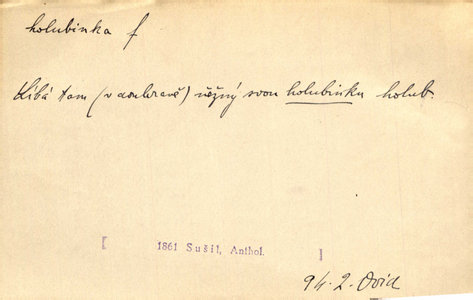 holubinka f
Líbá tam (v doubravě) něžný svou holubinku holub.
[ 1861 Sušil, Anthol. ]
94. 2. Ovid